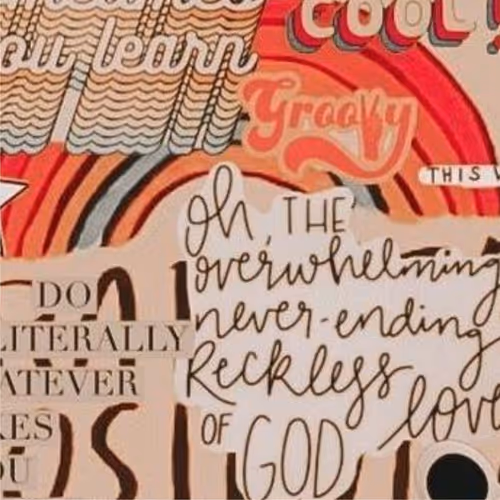 you learn
COOL!
Groovy
THIS
Oh, THE
overwhelming
never-ending
Reckless
OF GOD love
DO
LITERALLY
ATEVER
KES
OU